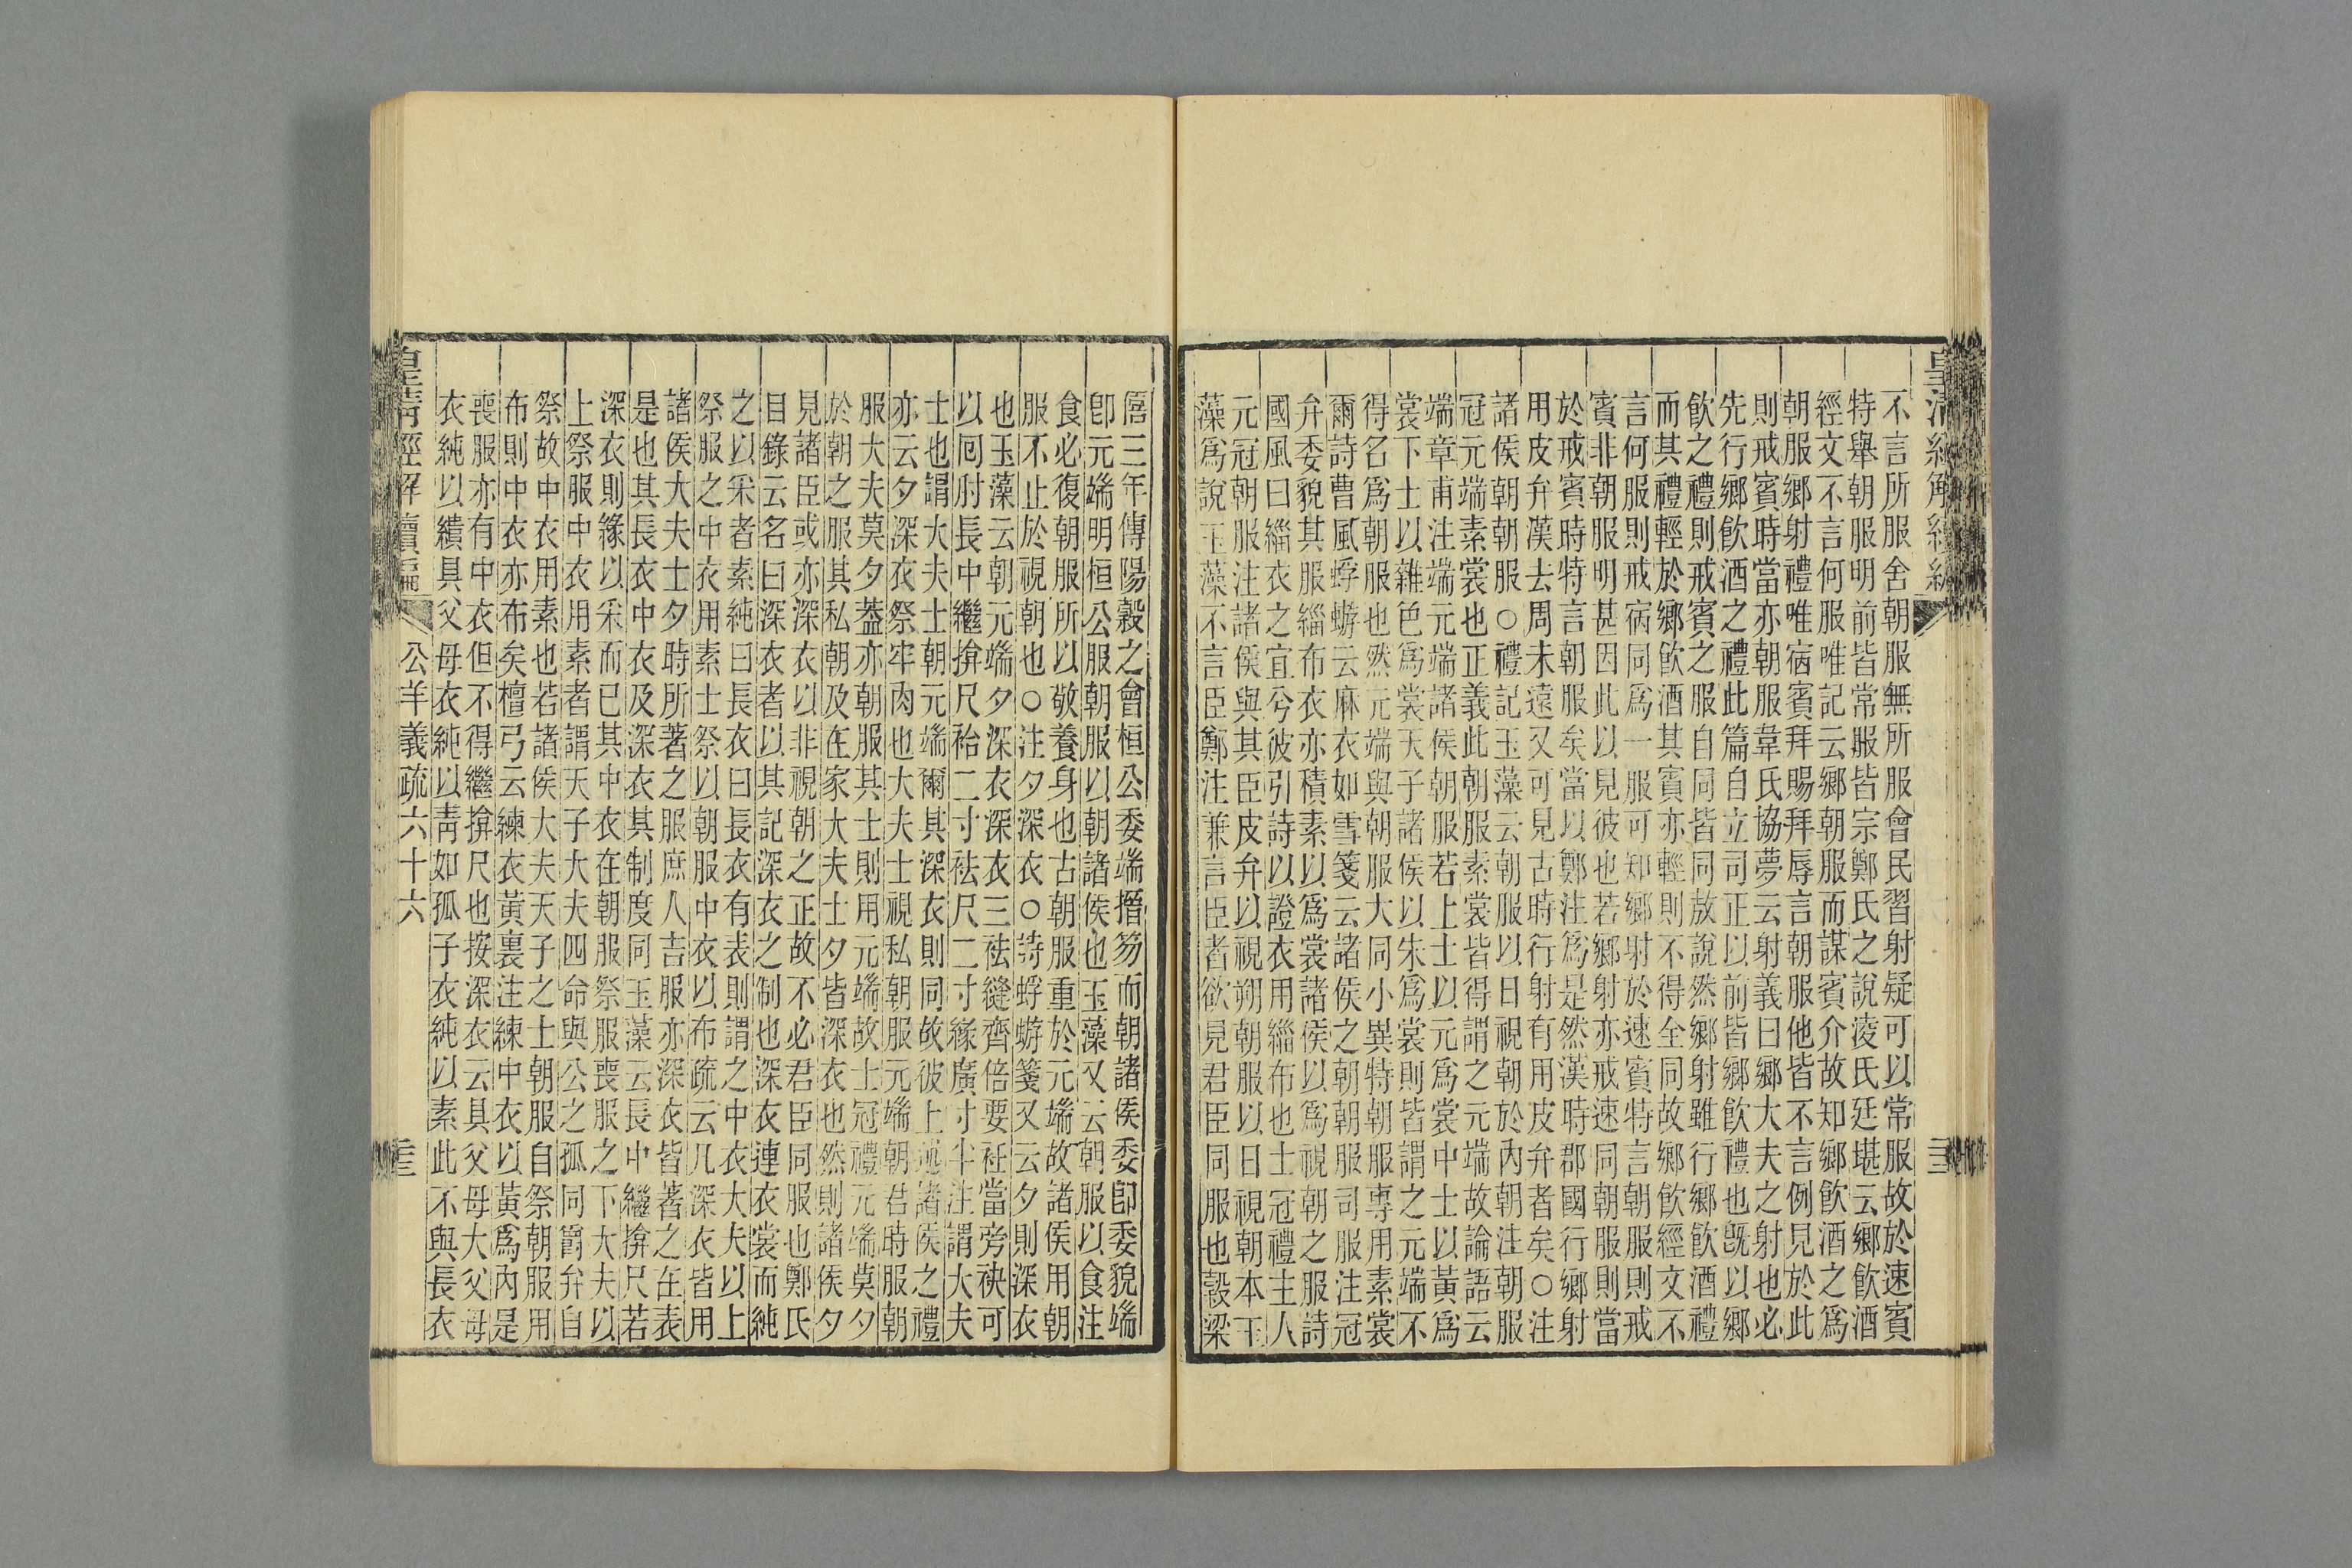 皇清經解續編
不言所服舍朝服無所服會民習射疑可以常服故於速賓
特舉朝服明前皆常服皆宗鄭氏之說淩氏廷堪云鄉飲酒
經文不言何服唯記云鄉朝服而謀賓介故知鄉飲酒之爲
朝服鄉射禮唯宿賓拜賜拜辱言朝服他皆不言例見於此
則戒賓時當亦朝服韋氏協夢云射義曰鄉大夫之射也必
先行鄉飲酒之禮此篇自立司正以前皆鄉飲禮也旣以鄉
飲之禮則戒賓之服自同皆同放說然鄉射雖行鄉飲酒禮
而其禮輕於鄉飲酒其賓亦輕則不得全同故鄉飲經文不
言何服則戒宿同爲一服可知鄉射於速賓特言朝服則戒
賓非朝服明甚因此以見彼也若鄉射亦戒速同朝服則當
於戒賓時特言朝服矣當以鄭注爲是然漢時郡國行鄉射
用皮弁漢去周未遠又可見古時行射有用皮弁者矣○注
諸侯朝朝服○禮記玉藻云朝服以日視朝於內朝注朝服
冠元端素裳也正義此朝服素裳皆得謂之元端故論語云
端章甫注端元端諸侯朝服若上士以元爲裳中士以黃爲
裳下士以雜色爲裳天子諸侯以朱爲裳則皆謂之元端不
得名爲朝服也然元端與朝服大同小異特朝服專用素裳
爾詩曹風蜉蝣云麻衣如雪箋云諸侯之朝朝服司服注冠
弁委貌其服緇布衣亦積素以爲裳諸侯以爲視朝之服詩
國風曰緇衣之宜兮彼引詩以證衣用緇布也士冠禮主人
元冠朝服注諸侯與其臣皮弁以視朔朝服以日視朝本玉
藻爲說玉藻不言臣鄭注兼言臣者欲見君臣同服也穀梁
僖三年傳陽穀之會桓公委端搢笏而朝諸侯委卽委貌端
卽元端明桓公服朝服以朝諸侯也玉藻又云朝服以食注
食必復朝服所以敬養身也古朝服重於元端故諸侯用朝
服不止於視朝也○注夕深衣○詩蜉蝣箋又云夕則深衣
也玉藻云朝元端夕深衣深衣三袪縫齊倍要衽當旁袂可
以囘肘長中繼揜尺袷二寸袪尺二寸緣廣寸半注謂大夫
士也謂大夫士朝元端爾其深衣則同故彼上述諸侯之禮
亦云夕深衣祭牢肉也大夫士視私朝服元端朝君時服朝
服大夫莫夕葢亦朝服其士則用元端故士冠禮元端莫夕
於朝之服其私朝及在家大夫士夕皆深衣也然則諸侯夕
見諸臣或亦深衣以非視朝之正故不必君臣同服也鄭氏
目錄云名曰深衣者以其記深衣之制也深衣連衣裳而純
之以采者素純曰長衣曰長衣有表則謂之中衣大夫以上
祭服之中衣用素士祭以朝服中衣以布疏云凡深衣皆用
諸侯大夫士夕時所著之服庶人吉服亦深衣皆著之在表
是也其長衣中衣及深衣其制度同玉藻云長中繼揜尺若
深衣則緣以采而已其中衣在朝服祭服喪服之下大夫以
上祭服中衣用素者謂天子大夫四命與公之孤同爵弁自
祭故中衣用素也若諸侯大夫天子之士朝服自祭朝服用
布則中衣亦布矣檀弓云練衣黃裏注練中衣以黃爲內是
喪服亦有中衣但不得繼揜尺也按深衣云具父母大父母
衣純以繢具父母衣純以靑如孤子衣純以素此不與長衣
皇清經解續編
公羊義疏六十六